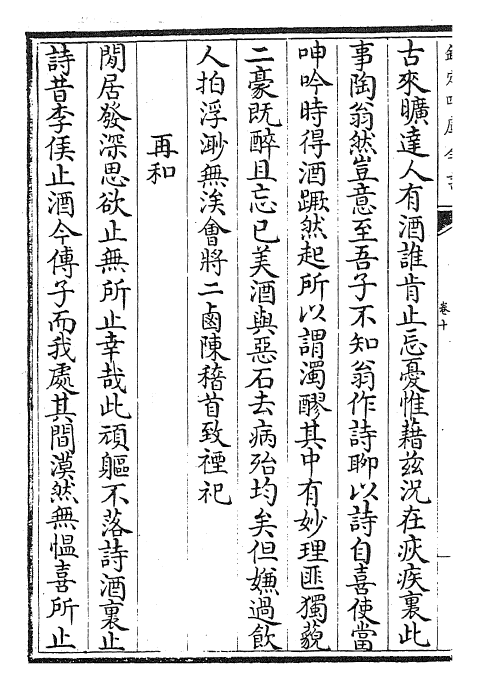 欽定四庫全書
卷十
古來曠達人有酒誰肯止忘憂惟藉兹況在疢疾裏此
事陶翁然豈意至吾子不知翁作詩聊以詩自喜使當
呻吟時得酒蹶然起所以謂濁醪其中有妙理匪獨藐
二豪既醉且忘已美酒與惡石去病殆均矣但嫌過飲
人拍浮渺無涘會將二卣陳稽首致禋祀
再和
閒居發深思欲止無所止幸哉此頑軀不落詩酒裏止
詩昔李侯止酒今傅子而我處其間漠然無愠喜所止